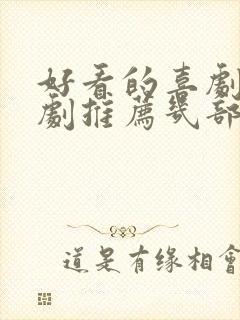 好看的喜劇
劇推薦幾部
道是有缘相會